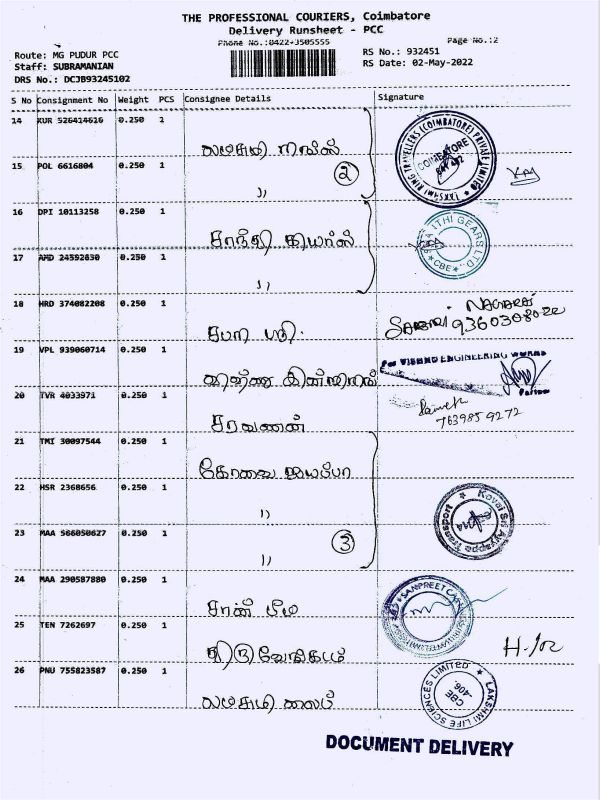 THE PROFESSIONAL COURIERS, Coimbatore
Delivery Runsheet - PCC
Phone No.:0422-3505555
Page No.:2
Route: MG PUDUR PCC
RS No.: 932451
Staff: SUBRAMANIAN
RS Date: 02-May-2022
DRS No.: DCJB93245102
S No Consignment No Weight PCS Consignee Details Signature
14 KUR 526414616 0.250 1
லட்சுமி
15 POL 6616804 0.250 1
2
〃
16 DPI 10113258 0.250 1
சாந்தி கியர்ஸ்
17 AMD 24592630 0.250 1
〃
18 HRD 374082208 0.250 1
சபரி ஸ்ரீ.
NAGARAJ
9360308022
19 VPL 939060714 0.250 1
விஷ்ணு இன்ஜினியரிங்
For VISHNU ENGINEERING WORKS
Partner
20 TVR 4033971 0.250 1
சரவணன்
7639859272
21 TMI 30097544 0.250 1
கோவை ஐயப்பா
22 HSR 2368656 0.250 1
〃
23 MAA 566050627 0.250 1
3
〃
Kovai Sri Ayyappa Transport
24 MAA 290587880 0.250 1
சான்
SANPREET
25 TEN 7262697 0.250 1
திருவேங்கடம்
26 PNU 755823587 0.250 1
லட்சுமி லைப்
LAKSHMI RING TRAVELLERS (COIMBATORE) PRIVATE LIMITED
COIMBATORE
GEARS LTD.
CBE
LAKSHMI LIFE SCIENCES LIMITED
CBE
-406.
DOCUMENT DELIVERY